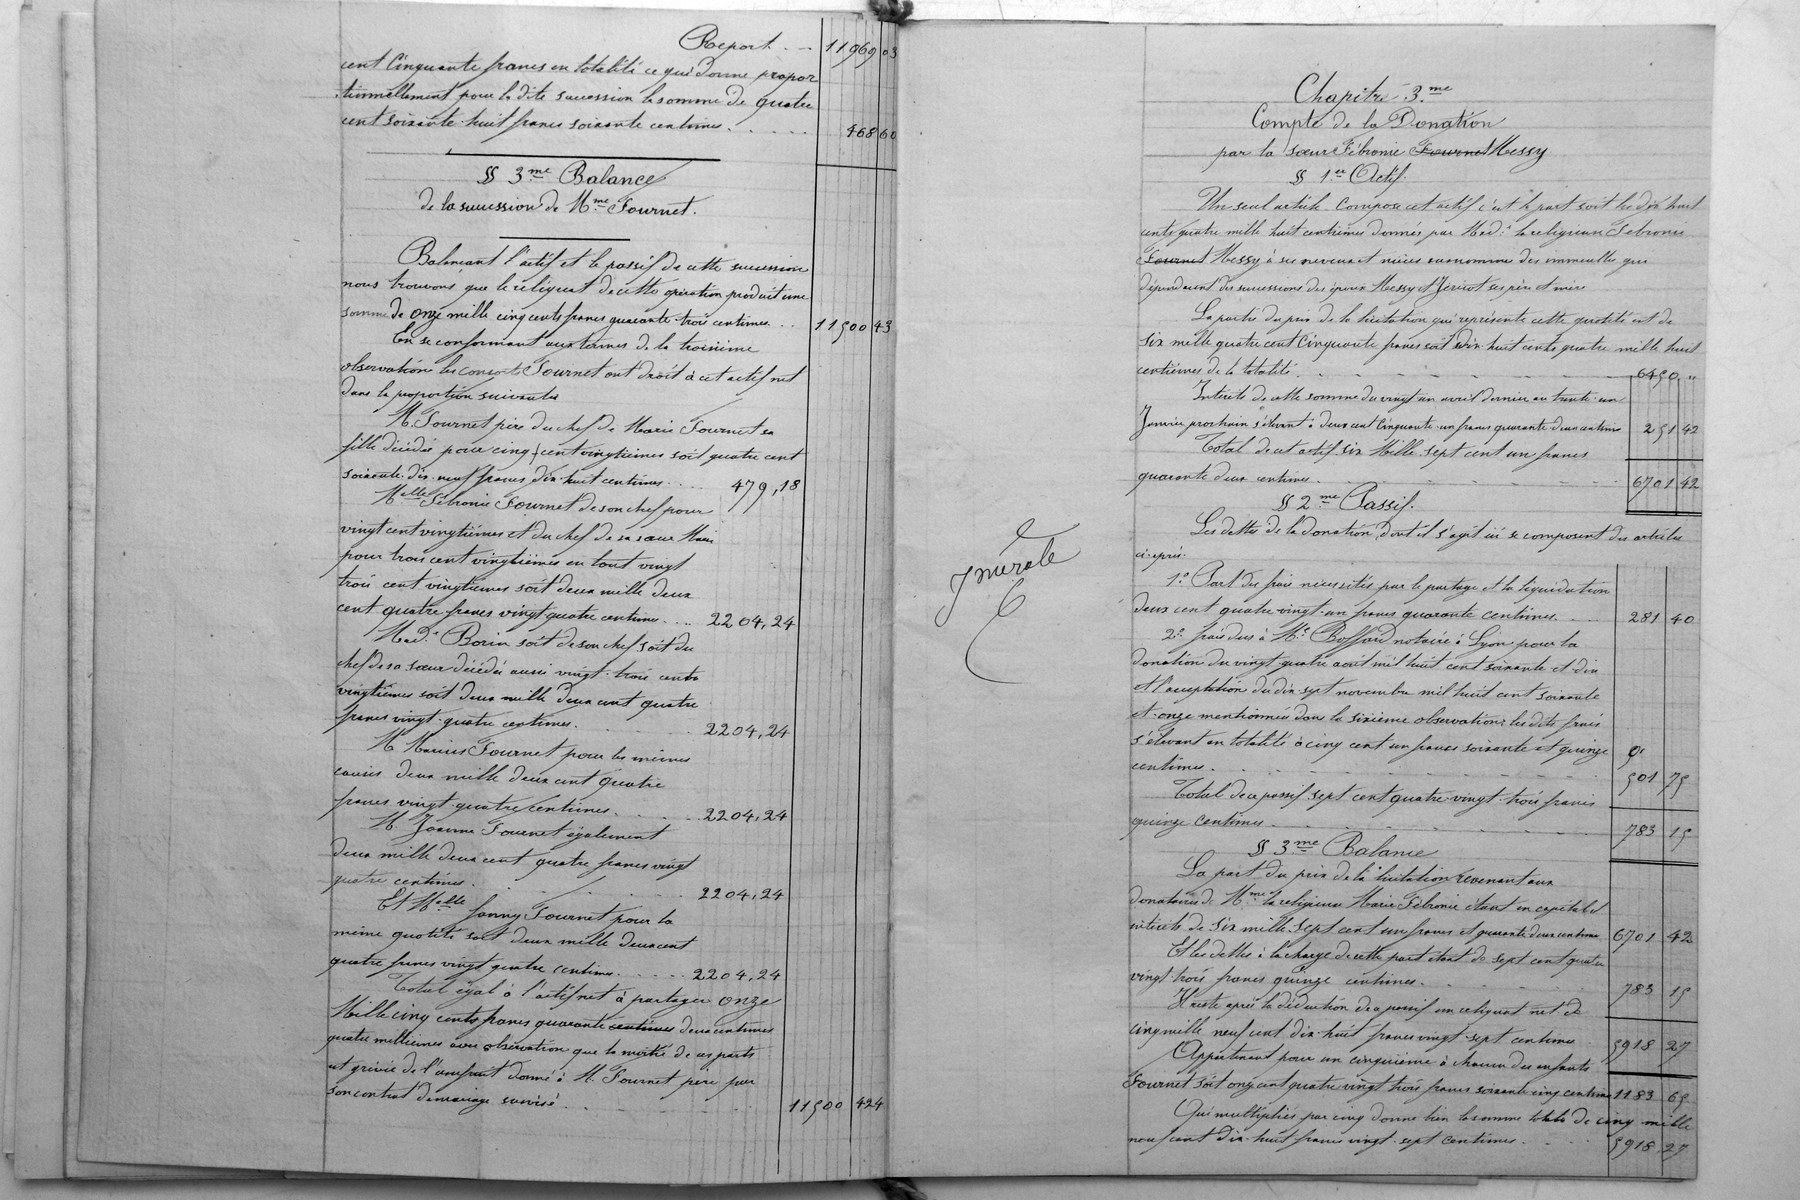 Report . — 11969 03
cent Cinquante francs en totalité ce qui donne propor
tionnellement pour la dite succession la somme de quatre
cent soixante-huit francs soixante centimes . . . . . 468 60
§§ 3.me Balance
de la succession de Mme Fournet.
Balançant l'actif et le passif de cette succession
nous trouvons que le reliquat de cette opération produit une
somme de onze mille cinq cents francs quarante-trois centimes . . 11500 43
En se conformant aux termes de la troisième
observation les consorts Fournet ont droit à cet actif net
dans la proportion suivante
M. Fournet père du chef de Marie Fournet sa
fille décédée pour cinq cent vingtièmes soit quatre cent
soixante-dix-neuf francs dix-huit centimes . . . . 479,18
Melle Fébronie Fournet de son chef pour
vingt cent vingtièmes et du chef de sa sœur Marie
pour trois cent vingtièmes en tout vingt
trois cent vingtièmes soit deux mille deux
cent quatre francs vingt-quatre centimes . . . . 2204,24
Made Borin soit de son chef soit du
chef de sa sœur décédée aussi vingt-trois cents
vingtièmes soit deux mille deux cent quatre
francs vingt-quatre centimes. . . . . 2204,24
M. Marius Fournet pour les mêmes
causes deux mille deux cent quatre
francs vingt-quatre centimes . . . . . 2204,24
M. Joanne Fournet également
deux mille deux cent quatre francs vingt
quatre centimes . . . . . 2204,24
Et Melle Fanny Fournet pour la
même quotité soit deux mille deux cent
quatre francs vingt quatre centimes . . . . . 2204,24
Total égal à l'actif net à partager onze
Mille cinq cents francs quarante centimes deux centimes
quatre millièmes avec observation que la moitié de ces parts
est grevée de l'usufruit donné à M. Fournet père par
son contrat de mariage susvisé . . . . . 11500 424
Chapitre 3.me
Compte de la Donation
par la sœur Fébronie Fournet Messy
§§ 1er Actif.
Un seul article compose cet actif c'est la part soit les dix huit
cents quatre mille huit centièmes donnés par Made la religieuse Febronie
Fournet Messy à ses neveux et nièces susnommés des immeubles que
dépendaient des successions des époux Messy et Jericot ses père et mère
La partie du prix de la licitation qui représente cette quotité est de
six mille quatre cent cinquante francs soit dix-huit cents quatre mille huit
centièmes de la totalité . . . . . 6450 "
Intérêts de cette somme du vingt un avril dernier au trente-un
Janvier prochain s'élevant à deux cent cinquante-un francs quarante deux centimes 251 42
Total de cet actif six Mille sept cent un francs
quarante deux centimes . . . . . 6701 42
§§ 2.me Passif.
Les dettes de la donation dont il s'agit ici se composent des articles
ci-après.
1.o Part des frais nécessités par le partage et la liquidation
deux cent quatre-vingt-un francs quarante centimes . . . 281 40
2.o frais dus à Me Boffard notaire à Lyon pour la
donation du vingt-quatre août mil huit cent soixante et dix
et l'acceptation du dix-sept novembre mil huit cent soixante
et-onze mentionnés dans la sixième observation; les dits frais
s'élevant en totalité à cinq cent un francs soixante et quinze
centimes . . . . . 501 75
Total de ce passif sept cent quatre-vingt-trois francs
quinze centimes . . . . . 783 15
§§ 3.me Balance
La part du prix de la licitation revenant aux
donataires de Mme la religieuse Marie Fébronie étant en capital et
intérêts de six mille sept cent un francs et quarante deux centimes 6701 42
Et les dettes à la charge de cette part étant de sept cent quatre
vingt-trois francs quinze centimes . . . . . 783 15
Il reste après la déduction de ce passif un reliquat net de
cinq mille neuf cent dix-huit francs vingt-sept centimes 5918 27
Appartenant pour un cinquième à chacun des enfants
Fournet soit onze cent quatre vingt trois francs soixante cinq centimes 1183 65
Qui multipliés par cinq donne bien la somme totale de cinq mille
neuf cent dix-huit francs vingt-sept centimes . . . . 5918,27